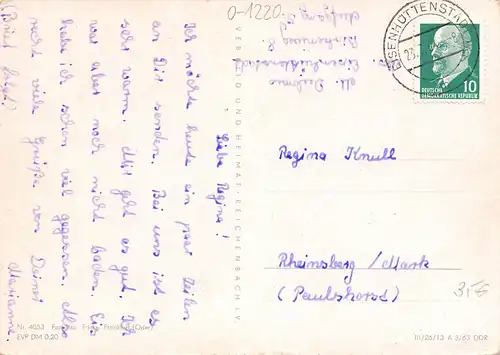 0-1220
Liebe Regina!
Ich möchte heute ein paar Zeilen
an Dir senden. Bei uns ist es
sehr warm. Mir geht es gut. Ich
war aber noch nicht baden. Eis
habe ich schon viel gegessen. Also
recht viele Grüße von Deiner
Marianne.
(Brief folgt!)
Nr. 4053
EVP DM 0,20
VERLAG BILD UND HEIMAT · REICHENBACH I. V.
M.
Eisenhüttenstadt
EISENHÜTTENSTADT
DEUTSCHE
DEMOKRATISCHE REPUBLIK
10
Regina Knull
Rheinsberg / Mark
(Paulshorst)
III/26/13 A 3/63 DDR